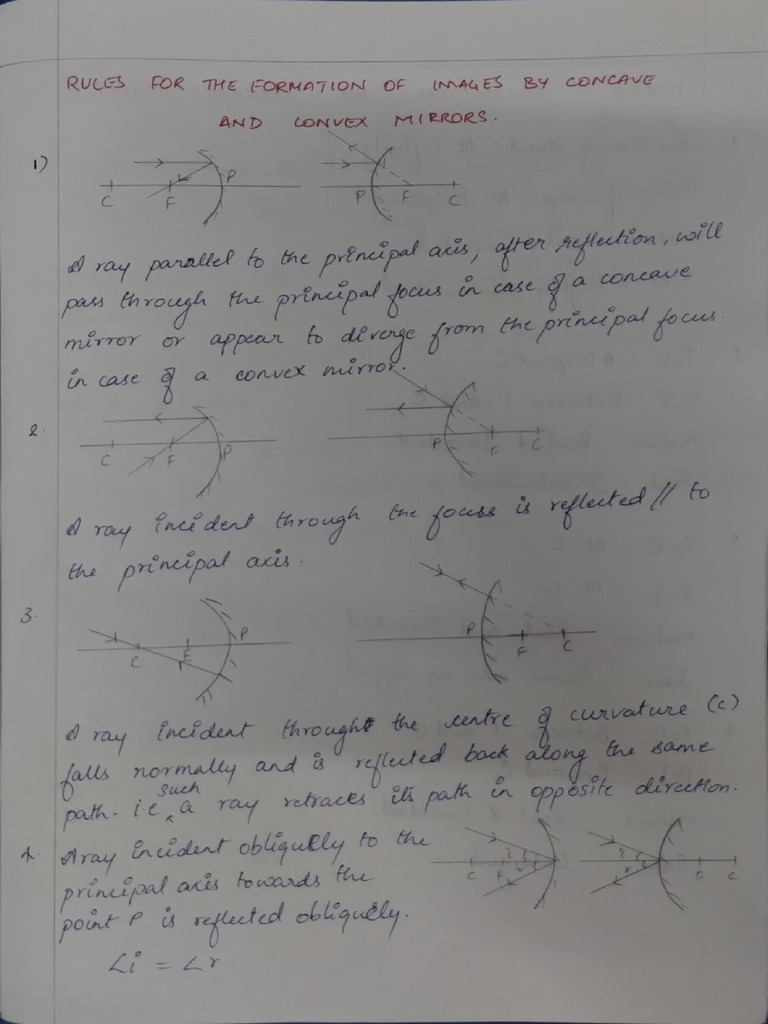 RULES FOR THE FORMATION OF IMAGES BY CONCAVE
AND CONVEX MIRRORS.
1)
C F P P F C
A ray parallel to the principal axis, after reflection, will
pass through the principal focus in case of a concave
mirror or appear to diverge from the principal focus.
in case of a convex mirror.
2.
C F P P F C
A ray incident through the focus is reflected // to
the principal axis.
3.
C F P P F C
A ray incident through the centre of curvature (C)
falls normally and is reflected back along the same
path. i.e such a ray retracks its path in opposite direction.
4. A ray incident obliquely to the
principal axis towards the
point P is reflected obliquely.
C F i r i r P F C
∠i = ∠r